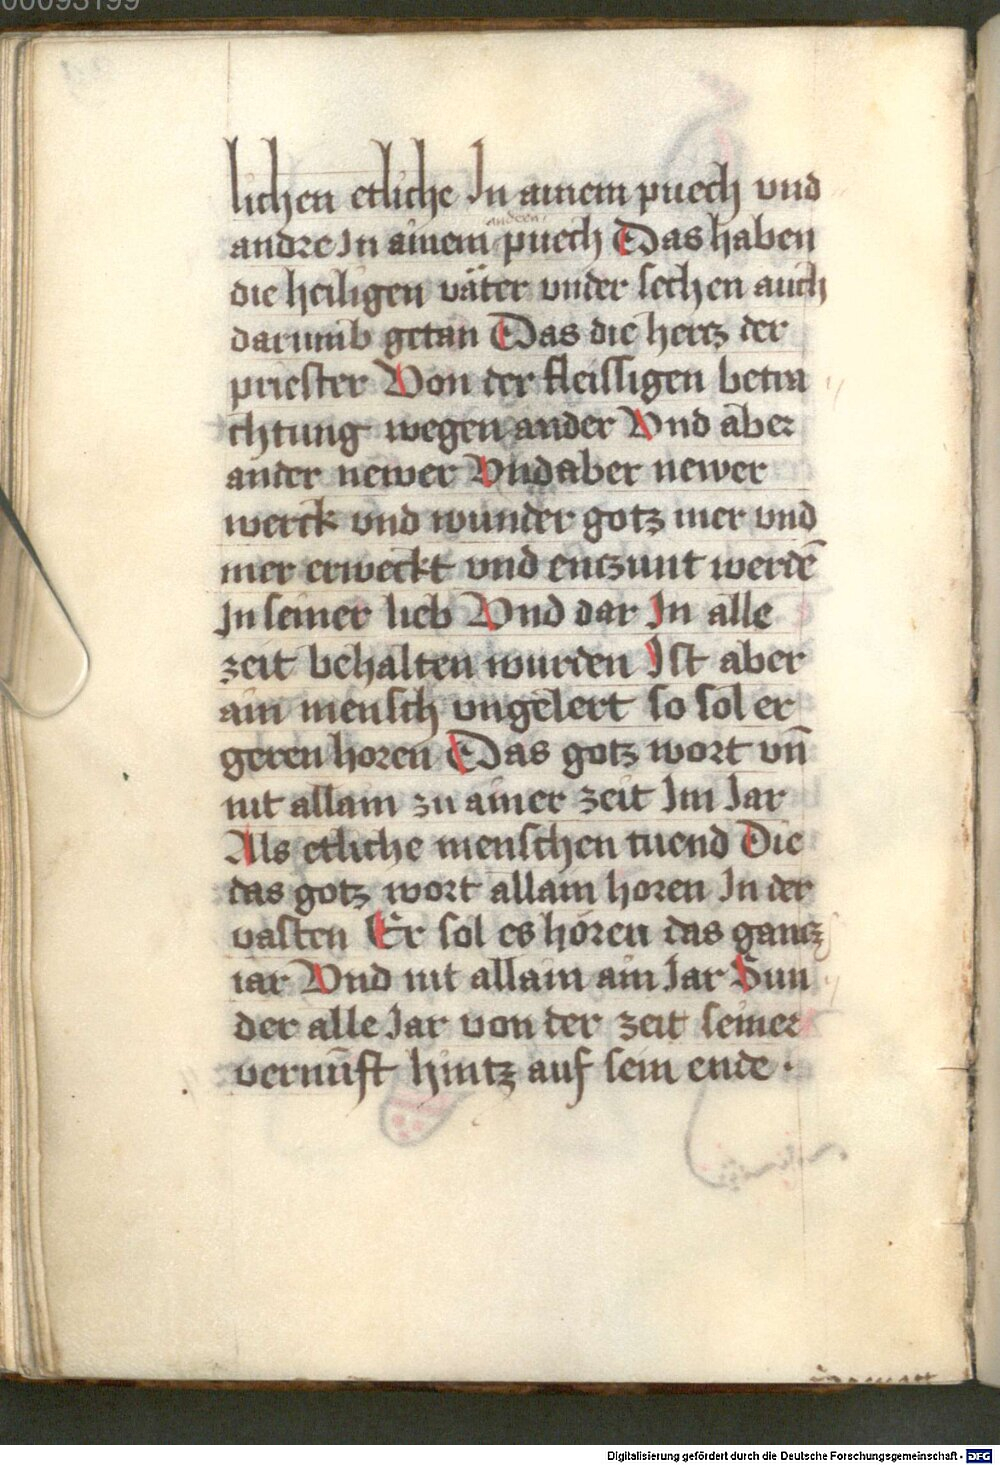 00093199
lichen etliche In ainem puech vnd
andern
andre In ainem puech Das haben
die heiligen väter vnder sechen auch
darumb getan Das die hertz der
priester Von der fleissigen betra
chtung wegen ander Vnd aber
ander newer Vnd aber newer
werck vnd wunder gotz mer vnd
mer erweckt vnd enczunt werdē
In seiner lieb Vnd dar In alle
zeit behalten wurden Ist aber
ain mensch vngelert so sol er
geren horen Das gotz wort vn̄
nit allain zu ainer zeit Im Jar
Als etliche menschen tuend Die
das gotz wort allain horen In der
vasten Er sol es hören das gancz
iar Vnd nit allain ain Jar Sun
der alle Jar von der zeit seiner
vernūft hintz auf sein ende .
Digitalisierung gefördert durch die Deutsche Forschungsgemeinschaft - DFG